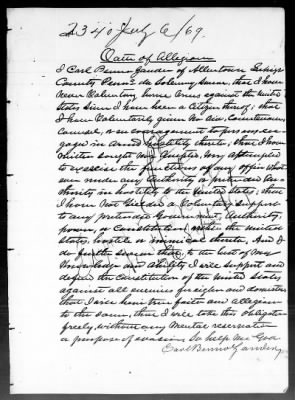 2340 July 6/69.
Oath of Allegiance
I Carl Benno Gander of Allentown Lehigh
County Penna do Solemnly Swear, that I have
never Voluntarily borne Arms against the United
States Since I have been a Citizen thereof; that
I have Voluntarily given No aid, Countenance,
Counsel, or encouragement to persons en-
gaged in armed hostility thereto; that I have
neither sought nor accepted, nor attempted
to exercise the functions of any office what-
ever under any authority or pretended au-
thority in hostility to the United States; that
I have not Yielded a Voluntary support
to any pretended Government, Authority,
power, or Constitution within the United
States, hostile or inimical thereto. And I
do further swear that, to the best of my
knowledge and ability I will support and
defend the Constitution of the United States
against all enemies foreign and domestic;
that I will bear true faith and allegiance
to the same; that I will take this obligation
freely, without any Mental reservation
or purpose of evasion, So help Me God
Carl Benno Gander